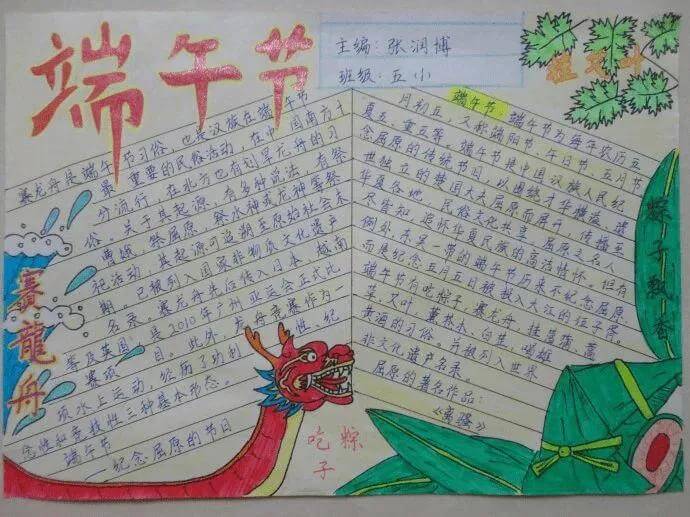 端午节
主编：张润博
班级：五小
挂艾叶
赛龙舟是端午节习俗，也是汉族在端午节
最重要的民俗活动，在中国南方十
分流行，在北方也有划旱龙舟的习
俗。关于其起源，有多种说法，有祭
曹娥，祭屈原，祭水神或龙神等祭
祀活动，其起源可追溯至原始社会末
期。已被列入国家非物质文化遗产
名录。赛龙舟先后传入日本、越南
等及英国，是2010年广州亚运会正式比
赛项目。此外，龙舟竞赛作为一
项水上运动，经历了功利性、纪
念性和竞技性三种基本形态。
端午节
——纪念屈原的节日
赛龍舟
端午节：端午节为每年农历五
月初五，又称端阳节、午日节、五月节
夏五、重五等。端午节是中国汉族人民纪
念屈原的传统节日，以围绕才华横溢、遗
世独立的楚国大夫屈原而展开，传播至
华夏各地，民俗文化共享，屈原之名人
尽皆知，追怀华夏民族的高洁情怀。但有
例外，东吴一带的端午节历来不纪念屈原，
而是纪念五月五日被投入大江的伍子胥。
端午节有吃粽子，赛龙舟，挂菖蒲、蒿
草、艾叶，薰苍术、白芷，喝雄
黄酒的习俗。并被列入世界
非文化遗产名录。
屈原的著名作品：
《离骚》
粽子飘香
吃粽子